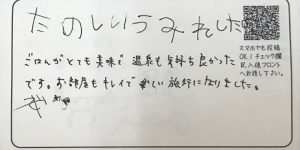 たのしいうみれした
スマホでも投稿
OK！チェック欄
記入後フロント
へお渡し下さい。
ごはんがとても美味で 温泉も気持ち良かった
です。お部屋もキレイで楽しい旅行になりました。